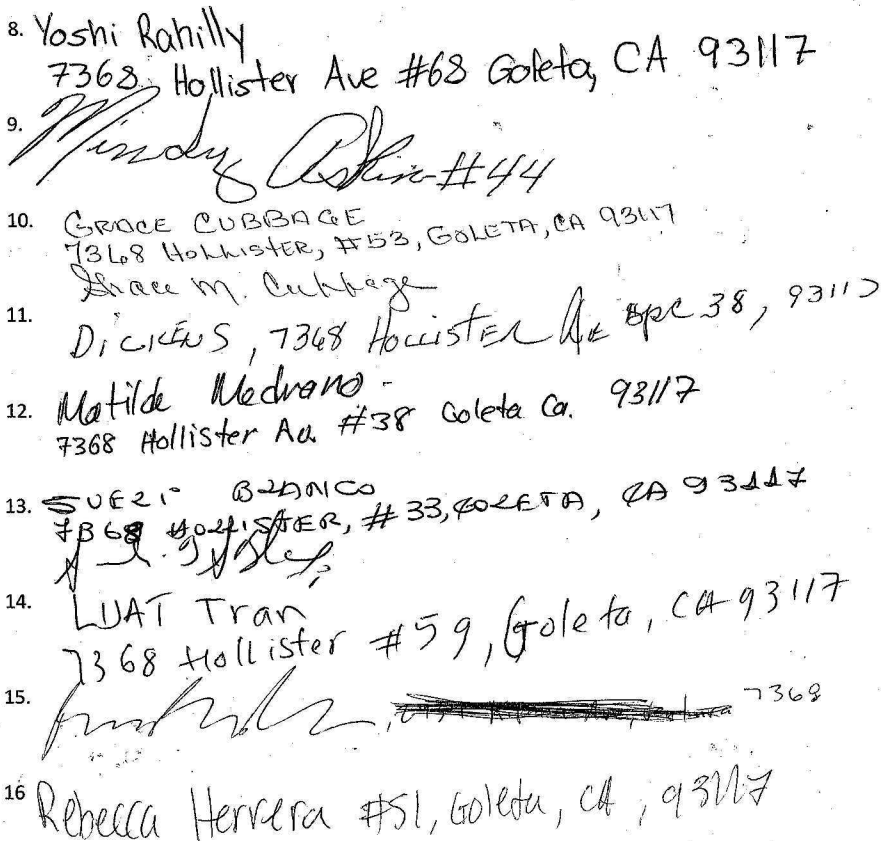 8. Yoshi Rahilly
7368 Hollister Ave #68 Goleta, CA 93117
9. Mindy Askin #44
10. GRACE CUBBAGE
7368 HOLLISTER, #53, GOLETA, CA 93117
Grace M. Cubbage
11. DICKENS, 7368 HOLLISTER Ave spc 38, 93117
12. Matilde Medrano -
7368 Hollister Av. #38 Goleta Ca. 93117
13. SUELI BLANCO
7368 HOLLISTER, #33, GOLETA, CA 93117
14. LUAT Tran
7368 Hollister #59, Goleta, CA 93117
15. 7368
16 Rebecca Herrera #51, Goleta, CA, 93117